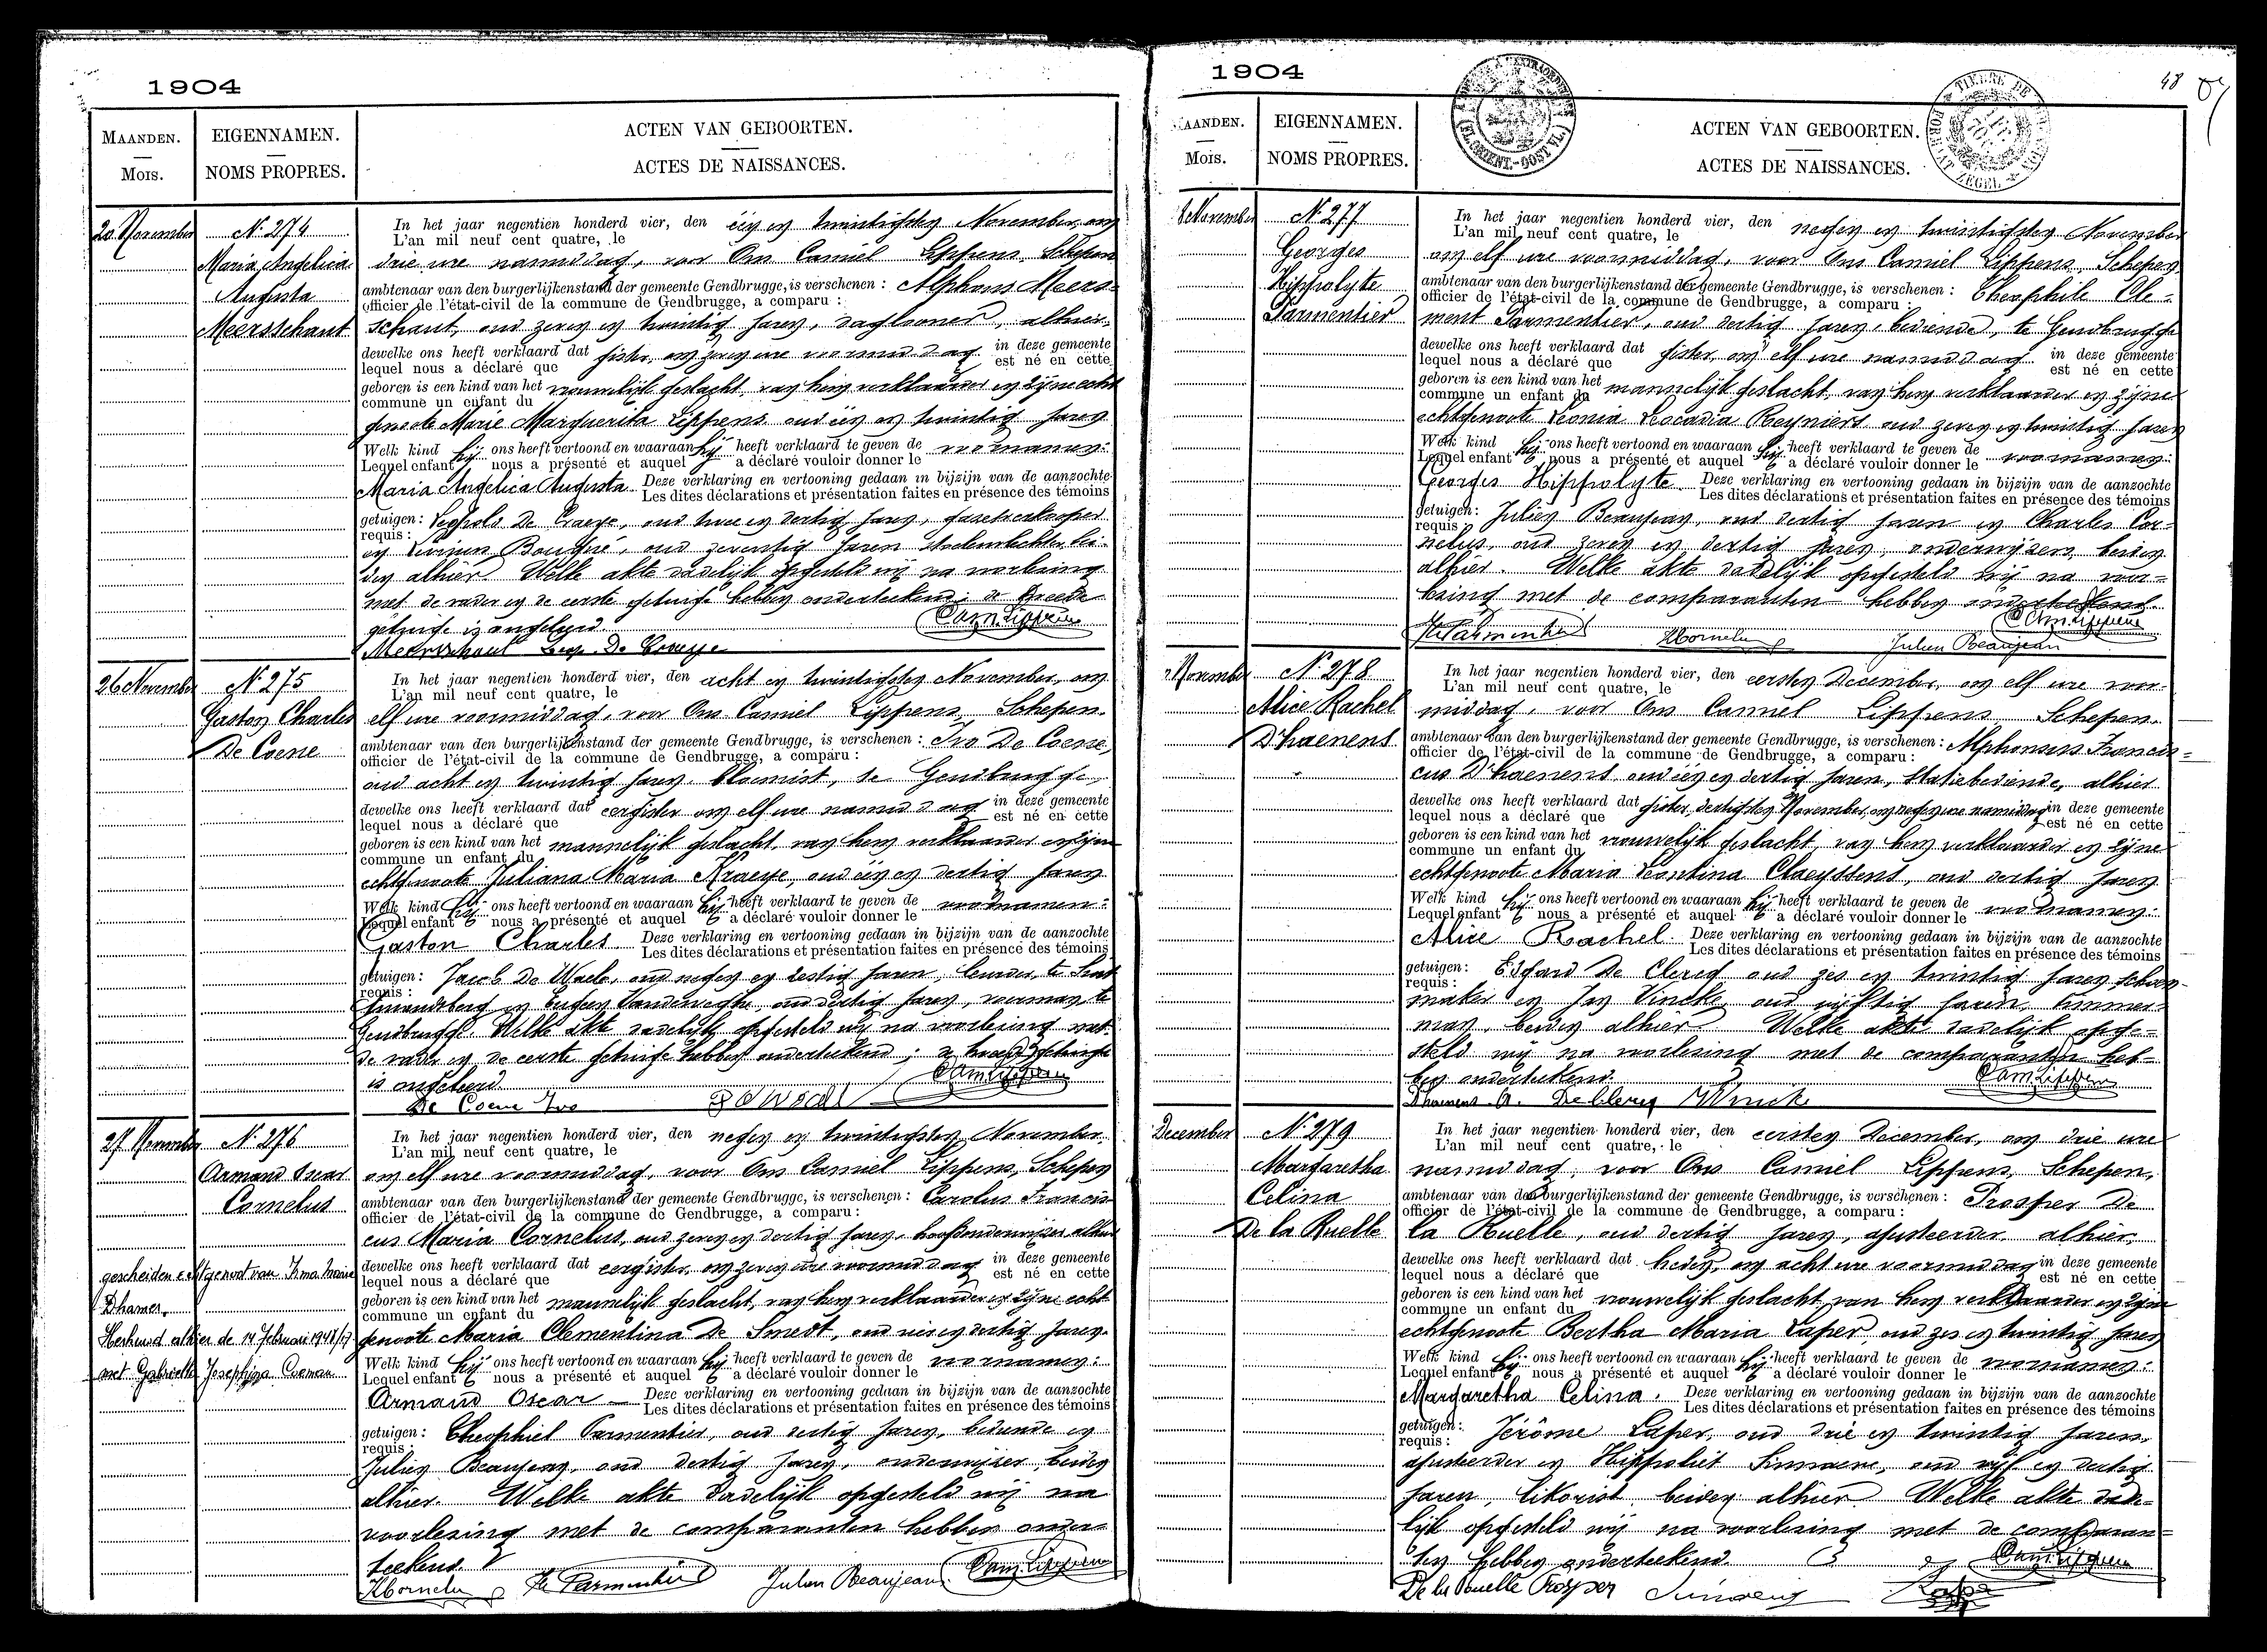 1904
MAANDEN.
Mois.
EIGENNAMEN.
NOMS PROPRES.
ACTEN VAN GEBOORTEN.
ACTES DE NAISSANCES.
20 November
N. 274
Maria Angelica
Augusta
Meersschaut
In het jaar negentien honderd vier, den één en twintigsten November, om
L'an mil neuf cent quatre, le
drie ure namiddag, voor Ons Camiel Lippens, Schepen
ambtenaar van den burgerlijkenstand der gemeente Gendbrugge, is verschenen : Alphons Meers-
officier de l'état-civil de la commune de Gendbrugge, a comparu :
schaut, oud zeven en twintig jaren, daglooner, alhier
dewelke ons heeft verklaard dat gister, om zeven ure voormiddag in deze gemeente
lequel nous a déclaré que est né en cette
geboren is een kind van het vrouwelijk geslacht, van hem verklaarder en zijne echt
commune un enfant du
genoote Marie Marguerita Lippens oud één en twintig jaren
Welk kind hij ons heeft vertoond en waaraan hij heeft verklaard te geven de voornamen:
Lequel enfant nous a présenté et auquel a déclaré vouloir donner le
Maria Angelica Augusta Deze verklaring en vertooning gedaan in bijzijn van de aanzochte
Les dites déclarations et présentation faites en présence des témoins
getuigen: Leopold De Craeye, oud twee en dertig jaren,
requis :
en Bouqué, oud zeventig jaren bei-
den alhier. Welke akte dadelijk opgesteld wij na voorlezing
met de vader en de eerste getuige hebben onderteekend; de tweede
getuige is ongeleerd.
Cam. Lippens
Meersschaut Leop. De Craeye
26 November
N. 275
Gaston Charles
De Coene
In het jaar negentien honderd vier, den acht en twintigsten November, om
L'an mil neuf cent quatre, le
elf ure voormiddag, voor Ons Camiel Lippens, Schepen
ambtenaar van den burgerlijkenstand der gemeente Gendbrugge, is verschenen : Ivo De Coene,
officier de l'état-civil de la commune de Gendbrugge, a comparu :
oud acht en twintig jaren bloemist, te Gendbrugge,
dewelke ons heeft verklaard dat eergister om elf ure namiddag in deze gemeente
lequel nous a déclaré que est né en cette
geboren is een kind van het mannelijk geslacht, van hem verklaarder en zijne
commune un enfant du
echtgenoote Juliana Maria Kraeye, oud één en dertig jaren
Welk kind hij ons heeft vertoond en waaraan hij heeft verklaard te geven de voornamen:
Lequel enfant nous a présenté et auquel a déclaré vouloir donner le
Gaston Charles Deze verklaring en vertooning gedaan in bijzijn van de aanzochte
Les dites déclarations et présentation faites en présence des témoins
getuigen: Jacob De Waele, oud negen en dertig jaren, te Sint
requis :
Amandsberg en Eugeen Vandeweghe oud dertig jaren, voerman te
Gendbrugge. Welke akte dadelijk opgesteld wij na voorlezing met
de vader en de eerste getuige hebben onderteekend; de tweede getuige
is ongeleerd.
Cam. Lippens
De Coene Ivo
27 November
N. 276
Armand Oscar
Cornelus
gescheiden echtgenoot van Irma Marie
Dhamer.
Herhuwd alhier de 14 februari 1948/17
met Gabrielle Josephina Coeman
In het jaar negentien honderd vier, den negen en twintigsten November
L'an mil neuf cent quatre, le
om elf ure voormiddag, voor Ons Camiel Lippens, Schepen
ambtenaar van den burgerlijkenstand der gemeente Gendbrugge, is verschenen : Carolus Francis
officier de l'état-civil de la commune de Gendbrugge, a comparu :
cus Maria Cornelus, oud zeven en dertig jaren, hoofdonderwijzer alhier
dewelke ons heeft verklaard dat eergister, om zeven ure voormiddag in deze gemeente
lequel nous a déclaré que est né en cette
geboren is een kind van het mannelijk geslacht, van hem verklaarder en zijne echt
commune un enfant du
genoote Maria Clementina De Smedt, oud en dertig jaren
Welk kind hij ons heeft vertoond en waaraan hij heeft verklaard te geven de voornamen:
Lequel enfant nous a présenté et auquel a déclaré vouloir donner le
Armand Oscar Deze verklaring en vertooning gedaan in bijzijn van de aanzochte
Les dites déclarations et présentation faites en présence des témoins
getuigen: Theophiel Parmentier, oud dertig jaren, bediende en
requis :
Julien Beaujean, oud dertig jaren, onderwijzer, beiden
alhier. Welke akte dadelijk opgesteld wij na
voorlezing met de comparanten hebben onder-
teekend.
KCornelus Th Parmentier Julien Beaujean Cam. Lippens
1904
48
MAANDEN.
Mois.
EIGENNAMEN.
NOMS PROPRES.
ACTEN VAN GEBOORTEN.
ACTES DE NAISSANCES.
8 November
N. 277
Georges
Hippolyte
Parmentier
In het jaar negentien honderd vier, den negen en twintigsten November
L'an mil neuf cent quatre, le
om elf ure voormiddag, voor Ons Camiel Lippens, Schepen
ambtenaar van den burgerlijkenstand der gemeente Gendbrugge, is verschenen : Theophile Cle-
officier de l'état-civil de la commune de Gendbrugge, a comparu :
ment Parmentier, oud dertig jaren, bediende, te Gendbrugge
dewelke ons heeft verklaard dat gister, om elf ure namiddag in deze gemeente
lequel nous a déclaré que est né en cette
geboren is een kind van het mannelijk geslacht, van hem verklaarder en zijne
commune un enfant du
echtgenoote Leonia Leocadia Reyniers oud zeven en twintig jaren
Welk kind hij ons heeft vertoond en waaraan hij heeft verklaard te geven de voornamen:
Lequel enfant nous a présenté et auquel a déclaré vouloir donner le
Georges Hippolyte Deze verklaring en vertooning gedaan in bijzijn van de aanzochte
Les dites déclarations et présentation faites en présence des témoins
getuigen: Julien Beaujean, oud dertig jaren en Charles Cor-
requis :
nelus, oud zeven en dertig jaren, onderwijzers, beiden
alhier. Welke akte dadelijk opgesteld wij na voor-
lezing met de comparanten hebben onderteekend.
Cam. Lippens
Th Parmentier KCornelus Julien Beaujean
November
N. 278
Alice Rachel
D'haenens
In het jaar negentien honderd vier, den eersten December, om elf ure voor-
L'an mil neuf cent quatre, le
middag, voor Ons Camiel Lippens Schepen
ambtenaar van den burgerlijkenstand der gemeente Gendbrugge, is verschenen : Alphonsus Francis-
officier de l'état-civil de la commune de Gendbrugge, a comparu :
cus D'haenens, oud één en dertig jaren, statiebediende, alhier
dewelke ons heeft verklaard dat gister, dertigsten November, om negen ure namiddag in deze gemeente
lequel nous a déclaré que est né en cette
geboren is een kind van het vrouwelijk geslacht, van hem verklaarder en zijne
commune un enfant du
echtgenoote Maria Leontina Claeyssens, oud dertig jaren
Welk kind hij ons heeft vertoond en waaraan hij heeft verklaard te geven de voornamen:
Lequel enfant nous a présenté et auquel a déclaré vouloir donner le
Alice Rachel Deze verklaring en vertooning gedaan in bijzijn van de aanzochte
Les dites déclarations et présentation faites en présence des témoins
getuigen: Edgard De Clercq oud zes en twintig jaren, schoen-
requis :
maker en Jan Vincke oud vijftig jaren, timmer-
man, beiden alhier. Welke akte dadelijk opge-
steld wij na voorlezing met de comparanten heb-
ben onderteekend.
Cam. Lippens
Dhaenens A. De Clercq J Vincke
December
N. 279
Margaretha
Celina
De la Ruelle
In het jaar negentien honderd vier, den eersten December, om drie ure
L'an mil neuf cent quatre, le
namiddag, voor Ons Camiel Lippens, Schepen,
ambtenaar van den burgerlijkenstand der gemeente Gendbrugge, is verschenen : Prosper De
officier de l'état-civil de la commune de Gendbrugge, a comparu :
la Ruelle, oud dertig jaren, ajusteerder alhier,
dewelke ons heeft verklaard dat heden, om acht ure voormiddag in deze gemeente
lequel nous a déclaré que est né en cette
geboren is een kind van het vrouwelijk geslacht van hem verklaarder en zijne
commune un enfant du
echtgenoote Bertha Maria Laper, oud zes en twintig jaren
Welk kind hij ons heeft vertoond en waaraan hij heeft verklaard te geven de voornamen:
Lequel enfant nous a présenté et auquel a déclaré vouloir donner le
Margaretha Celina. Deze verklaring en vertooning gedaan in bijzijn van de aanzochte
Les dites déclarations et présentation faites en présence des témoins
getuigen: Jérôme Laper, oud drie en twintig jaren,
requis :
ajusteerder en Hippoliet Sinnaeve, oud vijf en dertig
jaren, likorist, beiden alhier. Welke akte dade-
lijk opgesteld wij na voorlezing met de comparan-
ten hebben onderteekend.
Cam. Lippens
De la Ruelle Prosper